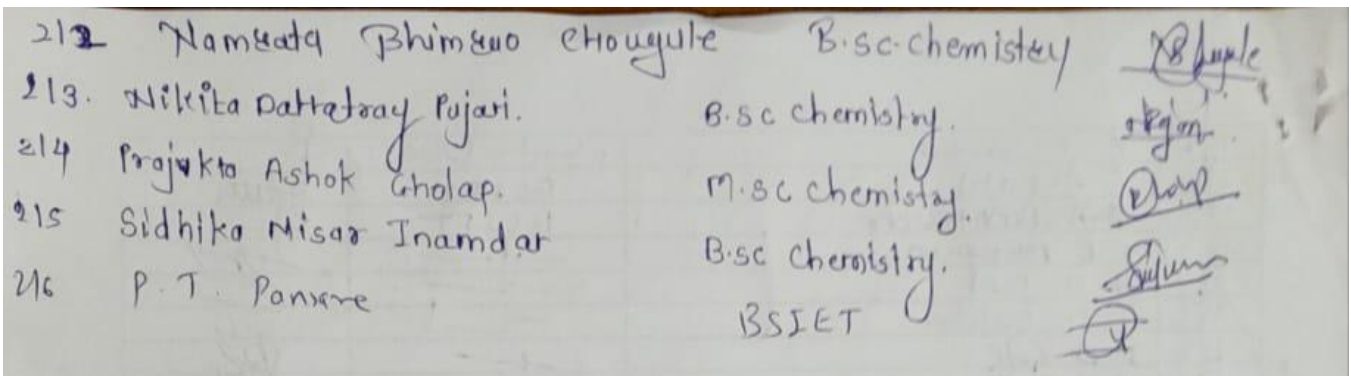 212 Namrata Bhimrao Chougule B.sc. chemistry
213. Nikita Dattatray Pujari. B.sc chemistry.
214 Prajakta Ashok Gholap. M.sc chemistry.
215 Sidhika Nisar Inamdar B.sc chemistry.
216 P. T. Pansare BSIET